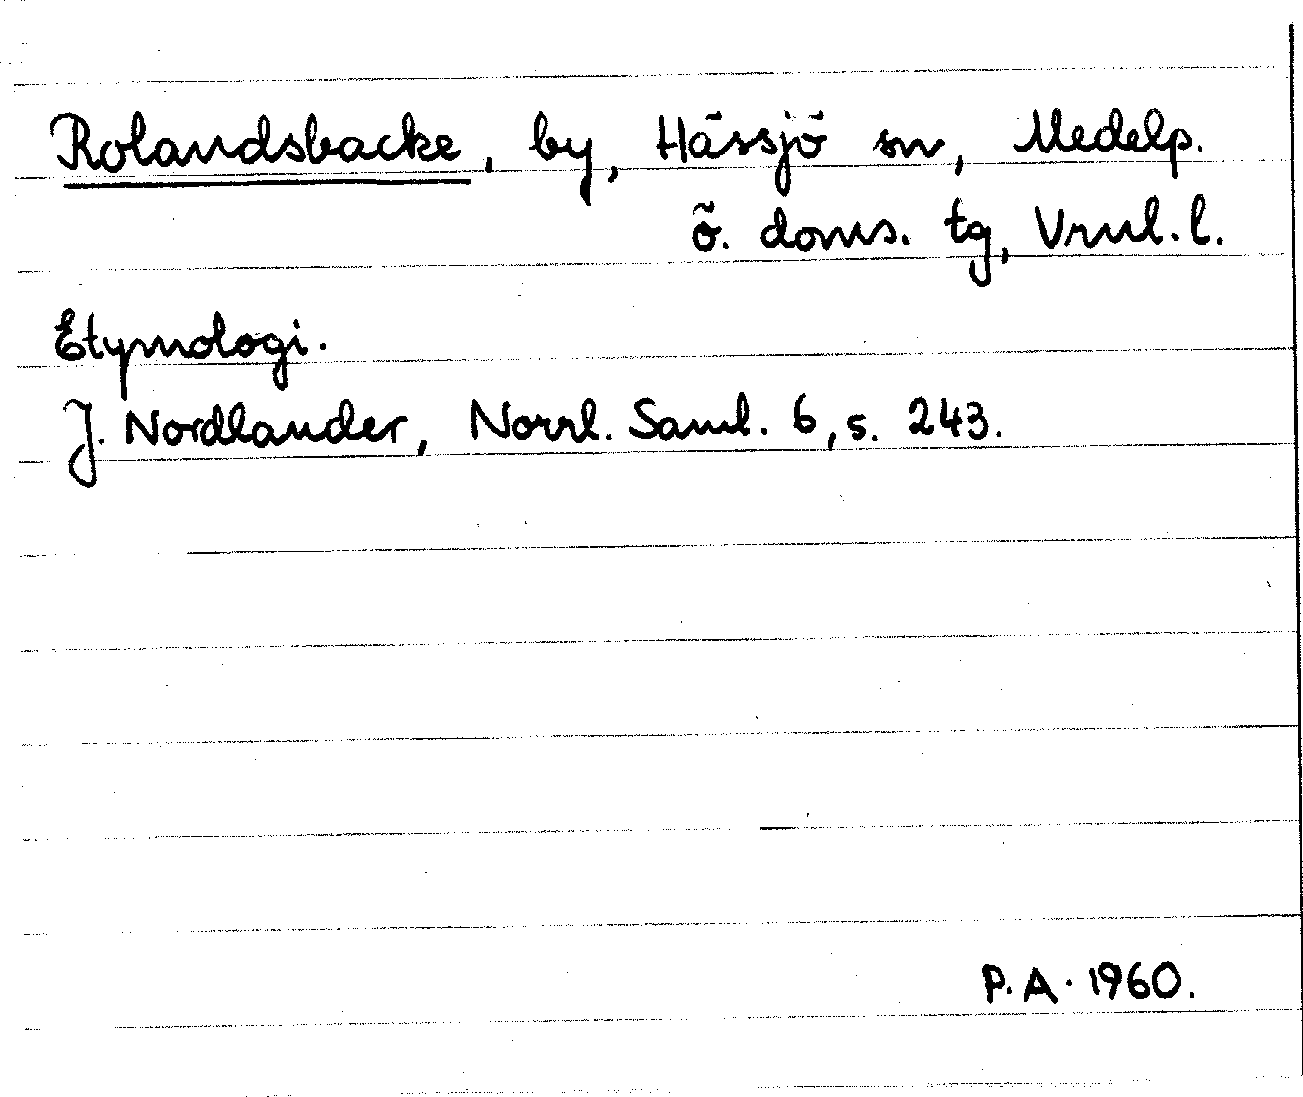 Rolandsbacke, by, Hässjö sn, Medelp.
ö. doms. tg, Vrnl. l.
Etymologi.
J. Nordlander, Norrl. Saml. 6, s. 243.
P. A. 1960.